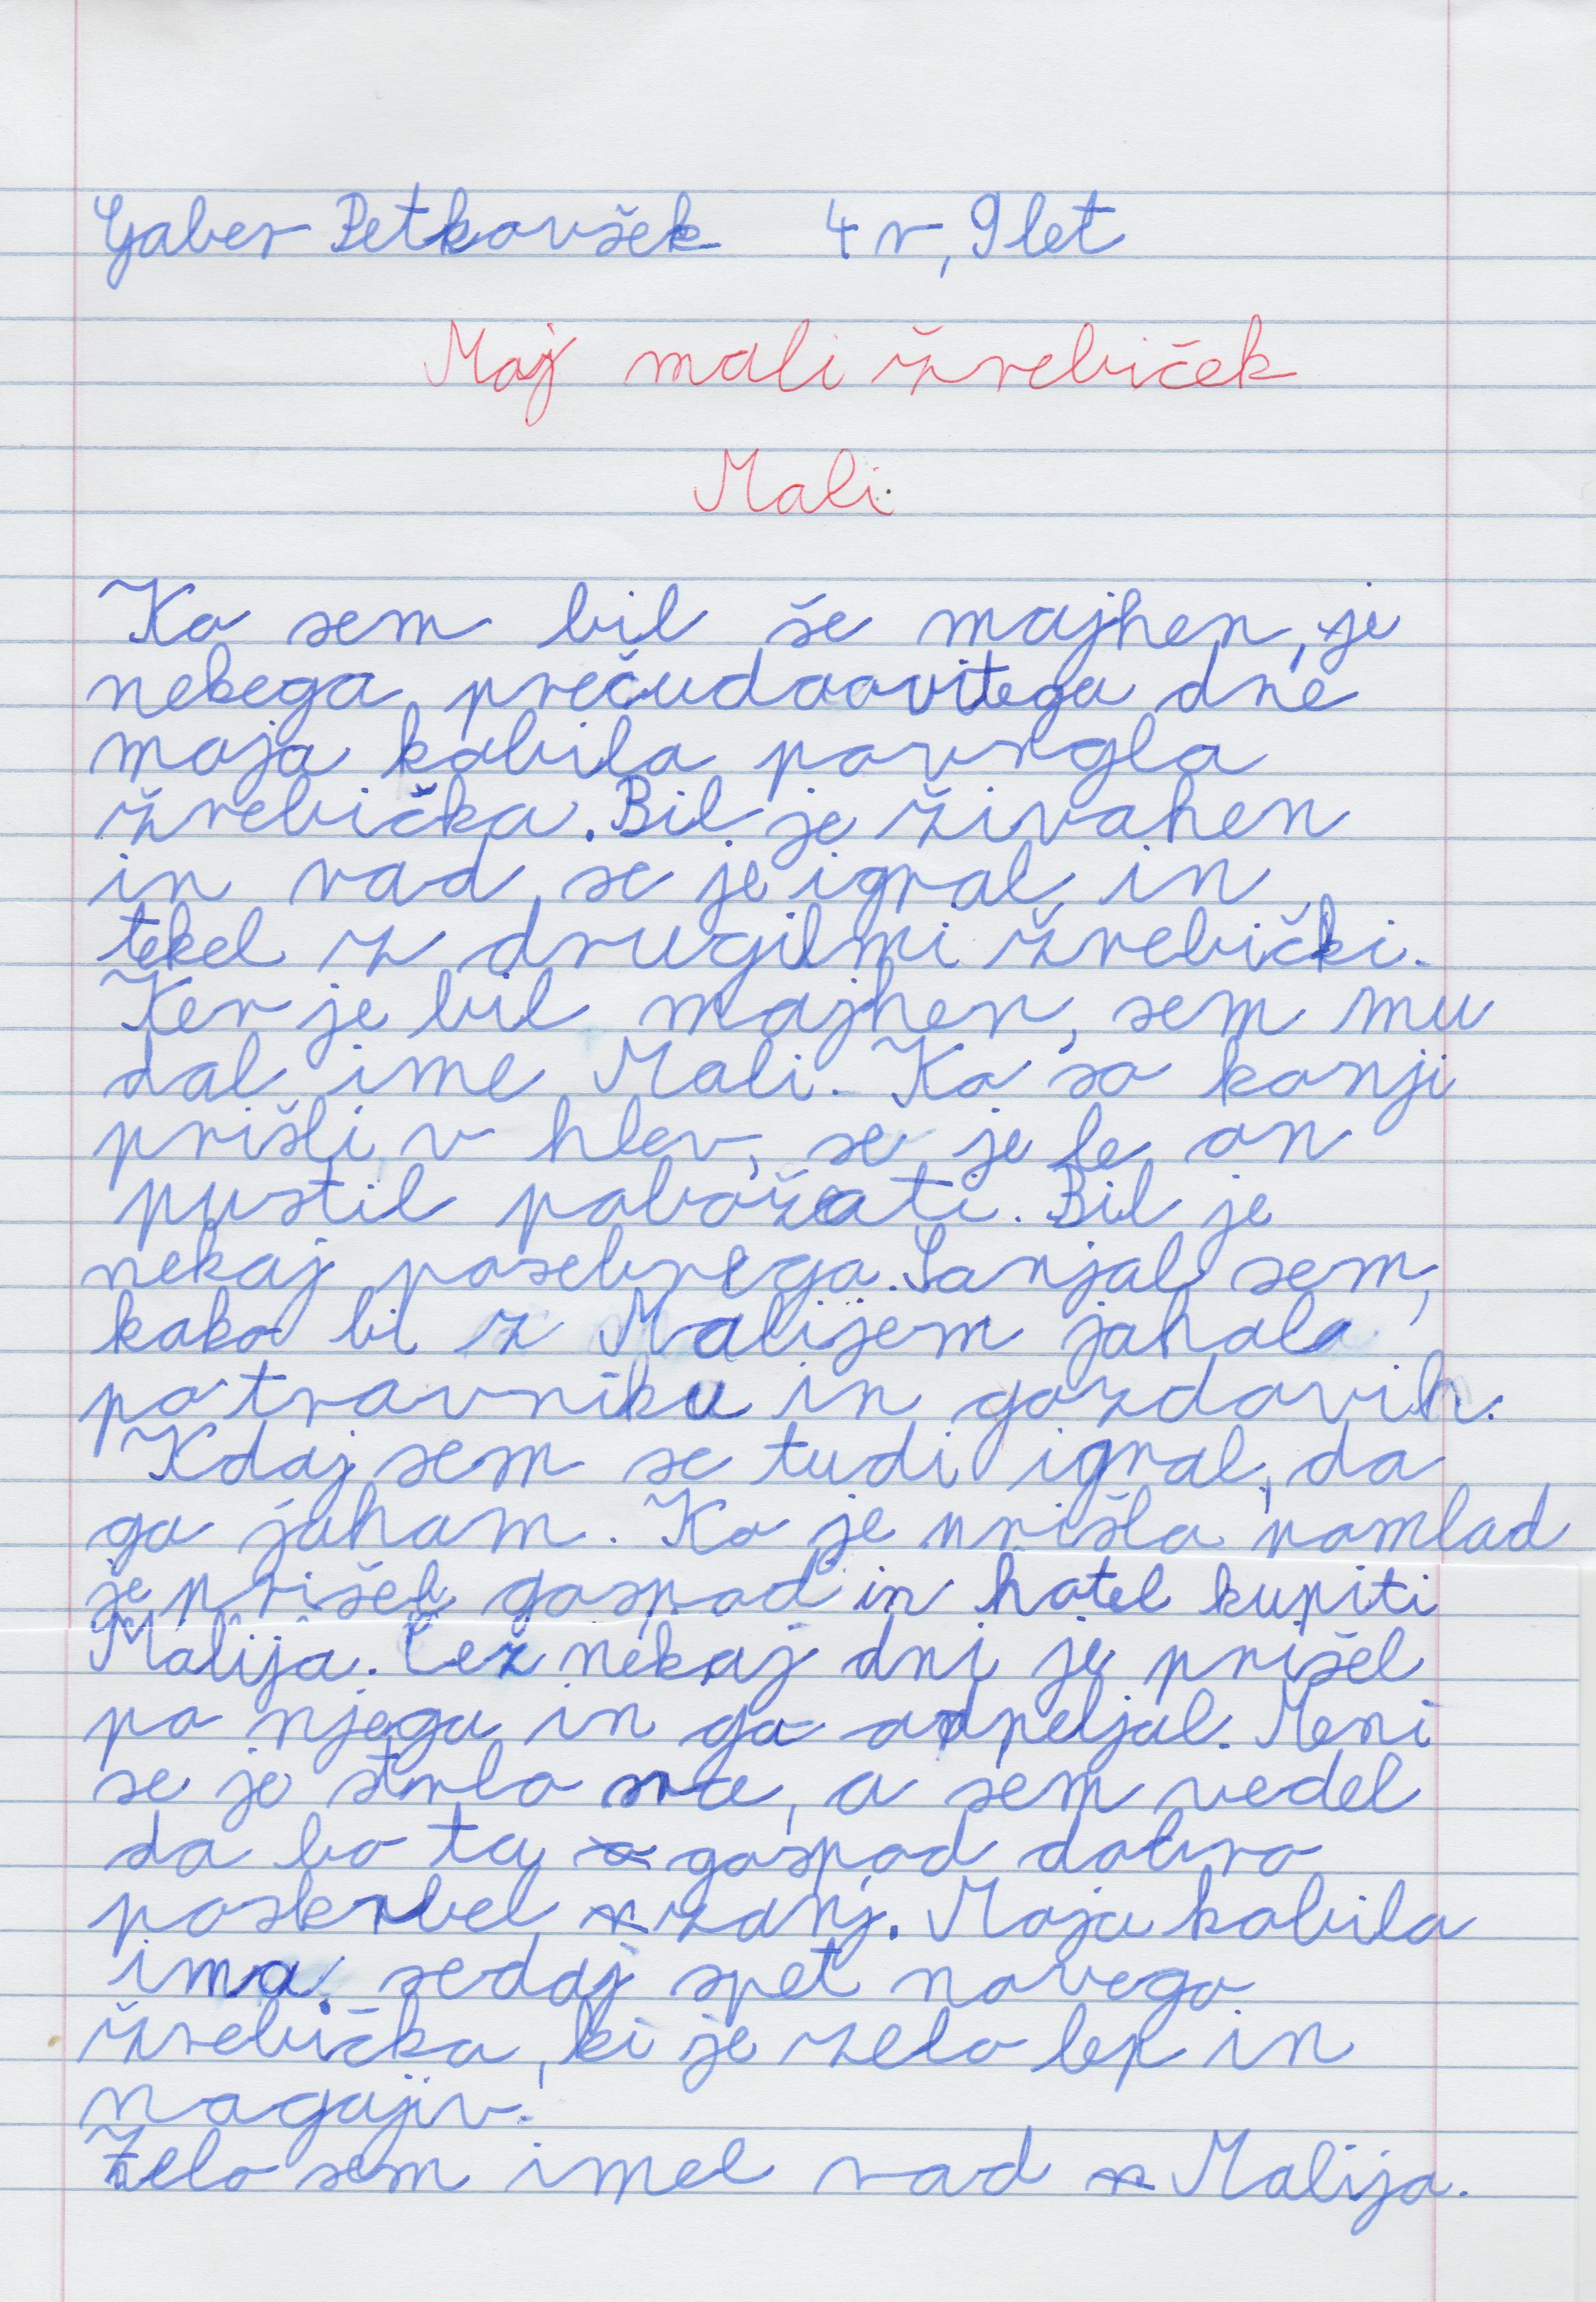 Gaber Petkovšek 4 r, 9 let
Moj mali žrebiček
Mali
Ko sem bil še majhen, je
nekega prečudovitega dne
moja kobila povrgla
žrebička. Bil je živahen
in rad se je igral in
tekel z drugimi žrebički.
Ker je bil majhen, sem mu
dal ime Mali. Ko so konji
prišli v hlev, se je le on
pustil pobožati. Bil je
nekaj posebnega. Sanjal sem,
kako bi z Malijem jahala
po travniku in gozdovih.
Kdaj sem se tudi igral, da
ga jaham. Ko je prišla pomlad
je prišel gospod in hotel kupiti
Malija. Čez nekaj dni je prišel
po njega in ga odpeljal. Meni
se je strlo srce, a sem vedel
da bo ta gospod dobro
poskrbel zanj. Moja kobila
ima sedaj spet novega
žrebička, ki je zelo lep in
nagajiv.
Zelo sem imel rad Malija.